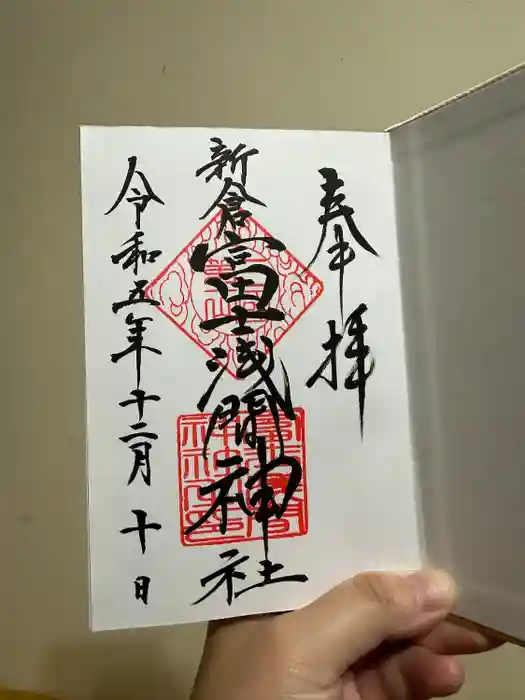 奉拝
新倉富士浅間神社
令和五年十二月十日